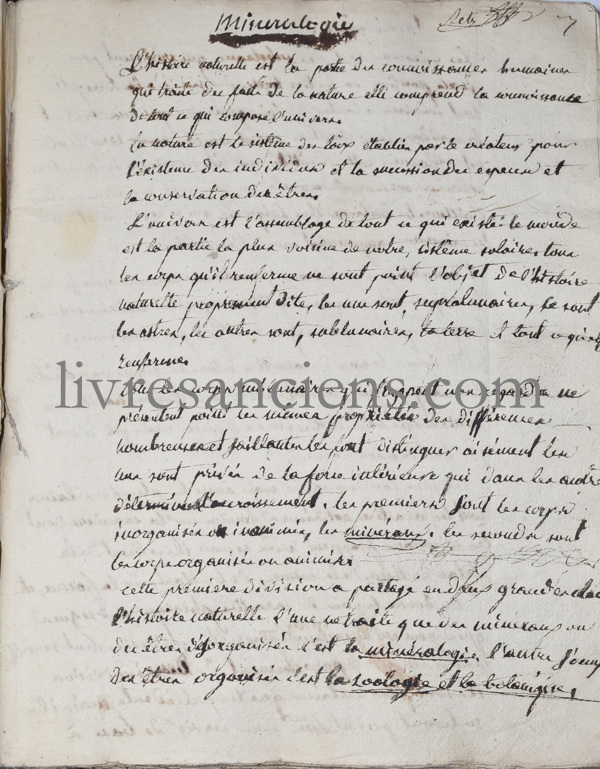 Mineralogie
L'histoire naturelle est la partie des connoissances humaines
qui traite des faits de la nature elle comprend la connoissance
de tout ce qui compose l'univers.
la nature est le sistême des loix établies par le créateur pour
l'existence des individus et la succession des especes et
la conservation des êtres.
L'univers est l'assemblage de tout ce qui existe. le monde
est la partie la plus voisine de notre, sistême solaire. tous
les corps qu'il renferme ne sont point l'objet de l'histoire
naturelle proprement dite, les uns sont, supralunaires, ce sont
les astres, les autres sont, sublunaires, la terre et tout ce qu'elle
renferme.
livresanciens.com
tous les corps qui nos regards ne
présentent point les mêmes propriétés des différences
nombreuses et saillantes les font distinguer aisément les
uns sont privés de la force intérieure qui dans les autres
détermine l'accroissement. les premiers sont les corps
inorganisés ou inanimés, les minéraux. les seconds sont
les corps organisés ou animés.
cette première division a partagé en deux grandes
l'histoire naturelle l'une ne traite que des mineraux ou
des êtres désorganisés c'est la minéralogie. l'autre
des êtres organisés c'est la zoologie et la botanique.